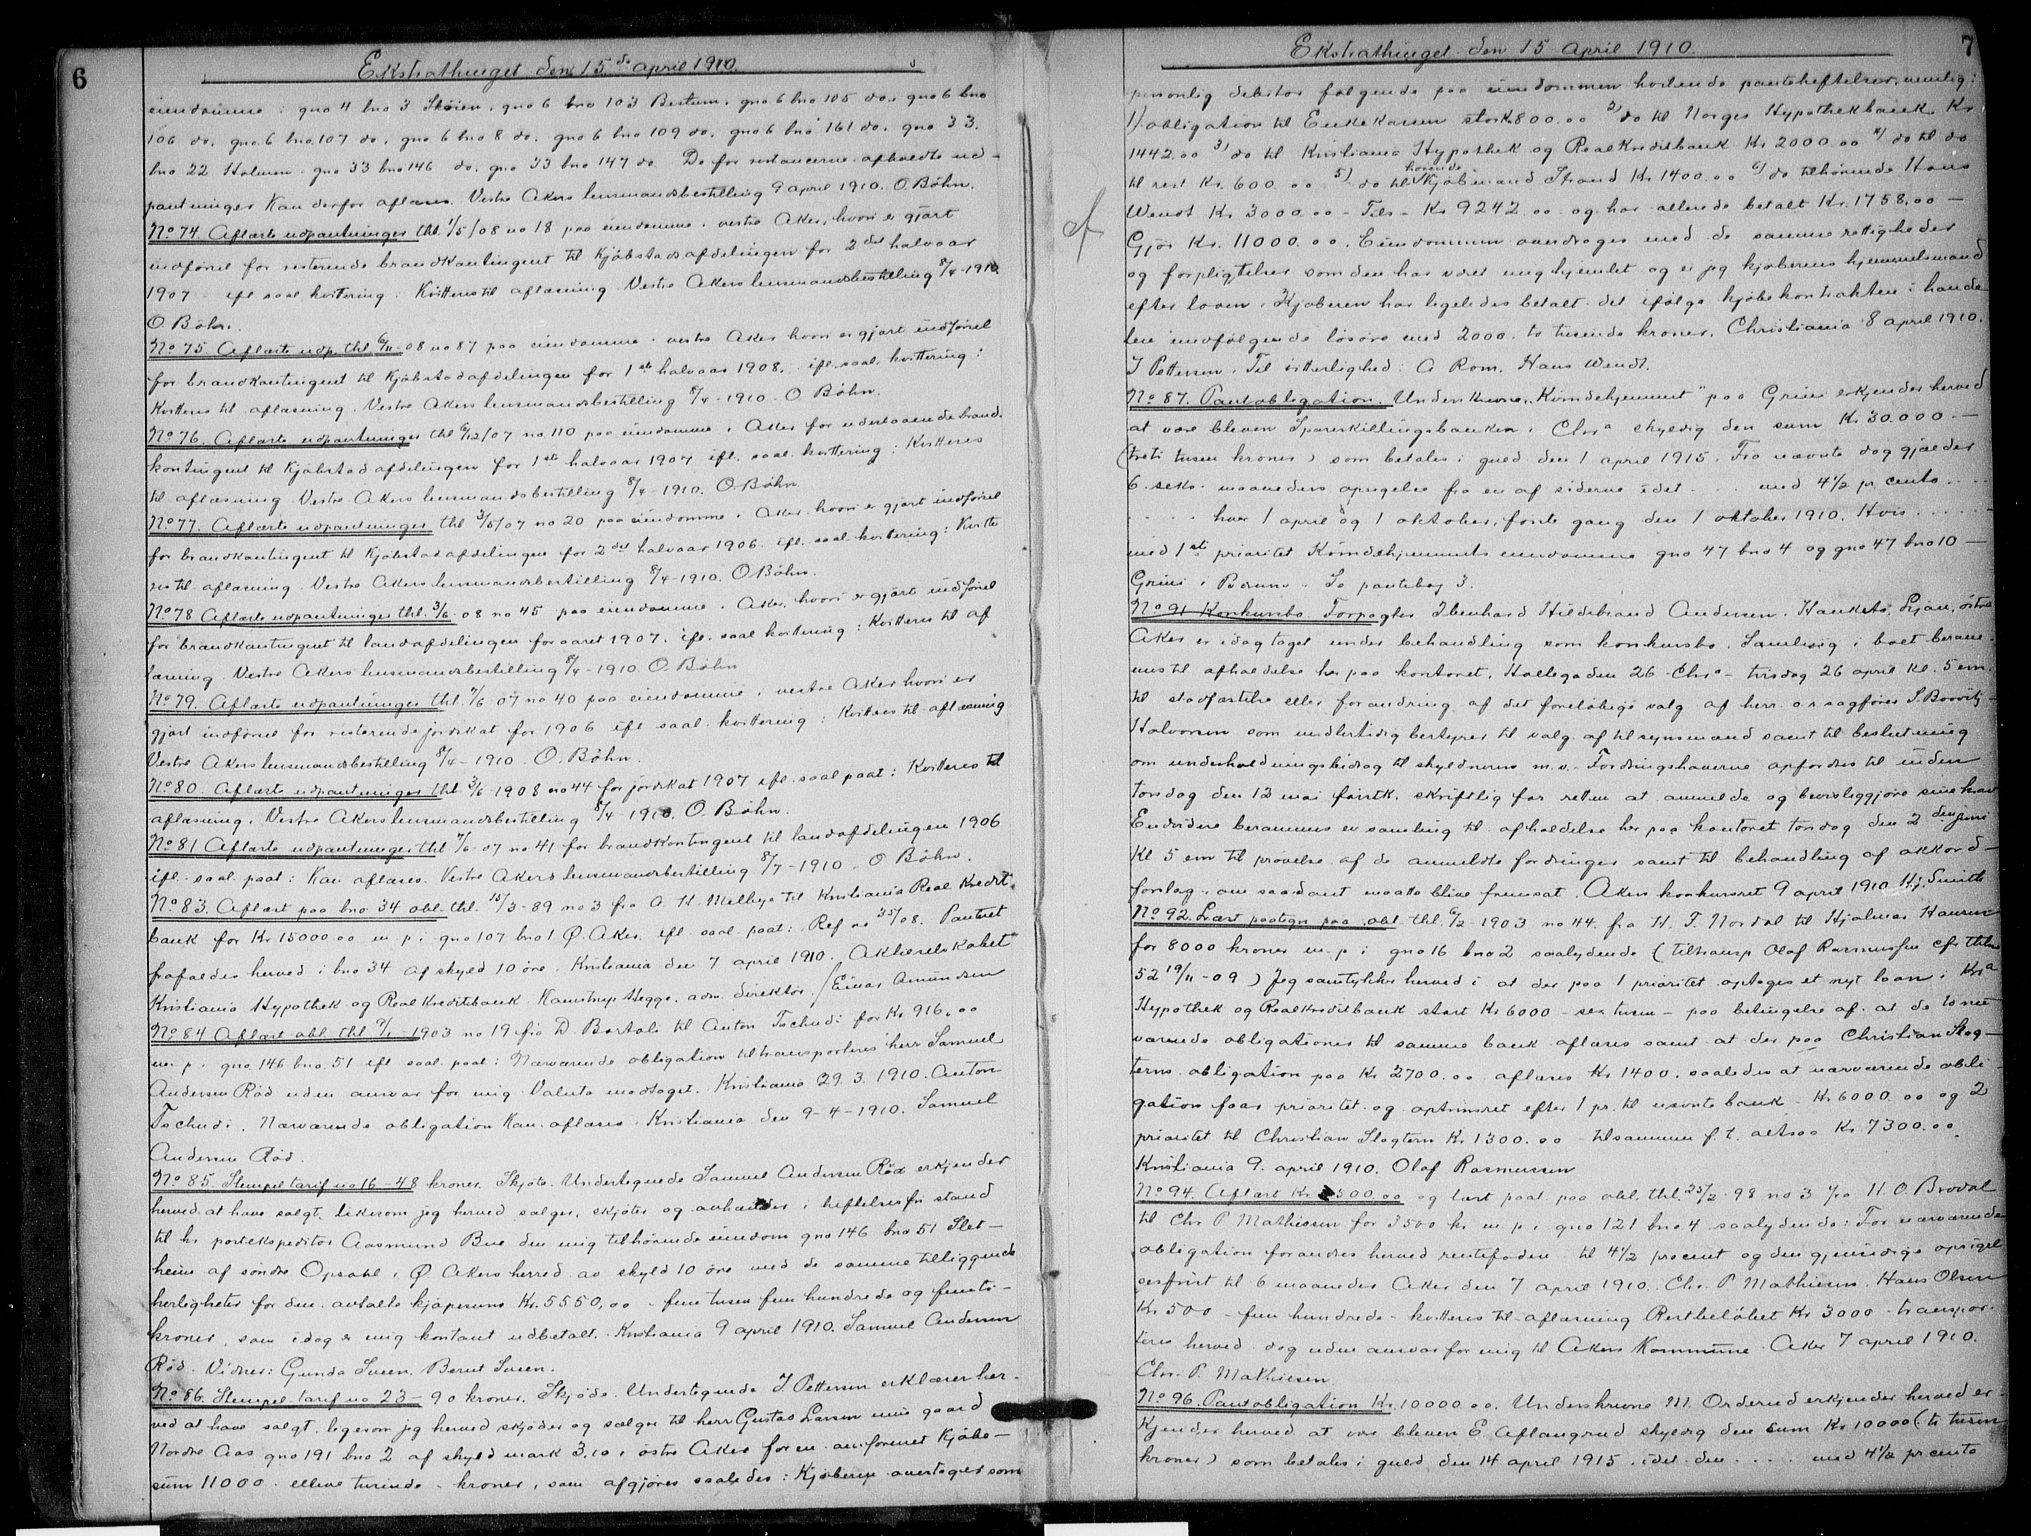 6
Ekstrathinget den 15de april 1910.
eiendomme: gno 4 bno 3 Skøien, gno 6 bno 103 Bestum, gno 6 bno 105 do, gno 6 bno
106 do, gno 6 bno 107 do, gno 6 bno 8 do, gno 6 bno 109 do, gno 6 bno 161 do, gno 33
bno 22 Holmen gno 33 bno 146 do, gno 33 bno 147 do. De for restancerne afholdte ud-
pantninger kan derfor aflæses. Vestre Akers lensmandsbestilling 9 april 1910. O. Bøhn.
No 74. Aflæste udpantninger thl. 1/5/08 no 18 paa eiendomme i vestre Aker, hvori er gjort
indførsel for resterende brandkontingent til Kjøbstadsafdelingen for 2det halvaar
1907 ifl saal kvittering: Kvitteres til aflæsning. Vestre Akers lensmandsbestilling 8/4-1910
O Bøhn.
No 75 Aflæste udp. thl. 6/11-08 no 87 paa eiendomme i vestre Aker hvori er gjort indførsel
for brandkontingent til Kjøbstadafdelingen for 1ste halvaar 1908, ifl. saal. kvittering:
Kvitteres til aflæsning. Vestre Akers lensmandsbestilling 8/4-1910. O Bøhn.
No 76. Aflæste udpantninger thl 6/12/07 no 110 paa eiendomme i Aker for udestaaende brand-
kontingent til Kjøbstadafdelingen for 1ste halvaar 1907 ifl. saal. kvittering: Kvitteres
til aflæsning. Vestre Akers lensmandsbestilling 8/4-1910. O. Bøhn
No 77. Aflæste udpantninger thl 3/5/07 no 20 paa eiendomme i Aker, hvori er gjort indførsel
for brandkontingent til Kjøbstadafdelingen for 2det halvaar 1906 ifl. saal. kvittering: Kvitte
res til aflæsning. Vestre Akers lensmandsbestilling 8/4-1910. O Bøhn.
No 78 Aflæste udpantninger thl. 3/6-08 no 45 paa eiendomme i Aker, hvori er gjort indførsel
for brandkontingent til landafdelingen for aaret 1907, ifl. saal kvittering: Kvitteres til af
læsning Vestre Akers lensmandsbestilling 8/4-1910. O. Bøhn
No 79. Aflæste udpantninger thl. 7/6-07 no 40 paa eiendomme i vestre Aker hvori er
gjort indførsel for resterende jordskat for 1906 ifl saal. kvittering: Kvitteres til aflæsning
Vestre Akers lensmandsbestilling 8/4-1910. O. Bøhn.
No 80. Aflæste udpantninger thl. 3/6-1908 no 44 for jordskat 1907 ifl. saal paat: Kvitteres til
aflæsning. Vestre Akers lensmandsbestilling 8/4-1910. O. Bøhn.
No 81 Aflæste udpantninger thl 7/6-07 no 41 for brandkontingent til landafdelingen 1906
ifl. saal. paat: Kan aflæses. Vestre Akers lensmandsbestilling 8/4-1910. O Bøhn.
No 83. Aflæst paa bno 34 obl. thl. 15/3-89 no 3 fra O. H. Melbye til Kristiania Real Kredit
bank for Kr 15000.00 m. p. i gno 107 bno 1 Ø. Aker, ifl. saal. paat: Ref no 35/08. Panteret
frafaldes herved i bno 34 af skyld 10 øre. Kristiania den 7 april 1910. Aktieselskabet
Kristiania Hypothek og Realkreditbank. Kamstrup Hegge. adm. direktør. / Einar Amundsen
No 84 Aflæst obl. thl 9/1-1903 no 19 fra D. Bartoli til Anton Tschudi for Kr 916,00
m. p. i gno 146 bno 51 ifl saal. paat: Nærværende obligation tiltransporteres herr Samuel
Andersen Rød uden ansvar for mig. Valuta modtaget. Kristiania 29. 3. 1910. Anton
Tschudi. Nærværende obligation kan aflæses. Kristiania den 9-4-1910. Samuel
Andersen Rød.
No 85. Stempeltarif no 16-48 kroner. Skjøte. Undertegnede Samuel Andersen Rød erkjender
herved at have solgt, likesom jeg herved sælger, skjøter og avhænder i heftelsesfri stand
til hr portekspeditør Aasmund Bue den mig tilhørende eiendom gno 146 bno 51 Slet-
heim af søndre Opsahl i Ø. Akers herred av skyld 10 øre med de samme tilliggende
herligheter for den avtalte kjøpesum Kr. 5550,00 - fem tusen fem hundrede og femti-
kroner, som idag er mig kontant udbetalt. Kristiania 9 april 1910. Samuel Andersen
Rød. Vidner: Gunda Sveen. Bernt Sveen.
No 86. Stempel tarif no 23-90 kroner. Skjøde. Undertegnede J Pettersen erklærer her-
ved at have solgt, ligesom jeg herved skjøder og sælger til herr Gustav Larsen min gaard
Nordre Aas gno 191 bno 2 af skyld mark 3.10 i østre Aker for en omforenet Kjøbe-
sum 11000 - elleve tusinde - kroner, som afgjøres saaledes: Kjøberen overtager som
7
Ekstrathinget den 15 april 1910.
personlig debitor følgende paa eiendommen hvilende pantehæftelser, nemlig:
1) obligation til Enkekassen stor K 800.00 2) do til Norges Hypothekbank Kr
1442.00 3) do til Kristiania Hypothek og Realkreditbank Kr 2000.00 4) do til do
til rest Kr. 600.00 5) do tilhørende Kjøbmand Strand Kr 1400.00 6) do tilhørende Hans
Wendt Kr 3000.00 - Tils- Kr 9242.00 og har allerede betalt Kr. 1758,00 -
Gjør Kr. 11000.00. Eiendommen overdrages med de samme rettigheder
og forpligtelser som den har været mig hjemlet og er jeg kjøberens hjemmelsmand
efter loven. Kjøberen har ligeledes betalt det ifølge kjøbekontrakten i hande
len medfølgende løsøre med 2000. to tusinde kroner. Christiania 8 april 1910.
J Pettersen. Til vitterlighed: A Rom. Hans Wendt.
No 87. Pantobligation. Underskrevne "Kvindehjemmet" paa Grini erkjender herved
at være bleven Sparekillingsbanken i Chra skyldig den sum Kr 30.000 -
(treti tusen kroner) som betales i guld den 1 april 1915. Fra nævnte dag gjælder
6 - seks - maaneders opsigelse fra en af siderne idet .... med 4 1/2 pr cento ....
..... hver 1 april og 1 oktober, første gang den 1 oktober 1910. Hvis .....
med 1ste prioritet Kvindehjemmets eiendomme gno 47 bno 4 og gno 47 bno 10 -
Grini i Bærum. Se pantebog 3.
No 91 Konkursbo Forpagter Ibenhard Hildebrand Andersen. Hauketo, Ljan, østre
Aker er idag taget under behandling som konkursbo. Samling i boet beram-
mes til afholdelse her paa kontoret, Kallegaden 26 Chra - tirsdag 26 april kl. 5 em.
til stadfæstelse eller forandring af det foreløbige valg af herr o.r.sagfører S. Borvitz
Halvorsen som midlertidig bestyrer til valg af tilsynsmand samt til beslutning
om underholdningsbidrag til skyldneren m.v. Fordringshaverne opfordres til inden
torsdag den 12 mai førstk. skriftlig for retten at anmelde og bevisliggjøre sine krav
Endvidere berammes en samling til afholdelse her paa kontoret torsdag den 2 den juni
Kl 5 em til prøvelse af de anmeldte fordringer samt til behandling af akkord-
forslag, om saadant maatte blive fremsat. Akers konkursret 9 april 1910. Hj. Smith
No 92. Læst paategn paa obl thl. 6/2-1903 no 44 fra H. T. Nordal til Hjalmar Hansen
for 8000 kroner m. p. i gno 16 bno 2 saalydende (tiltransp Olaf Rasmussen cfr thl no
52 19/11-09) Jeg samtykker herved i at der paa 1 prioritet optages et nyt laan i Kra
Hypothek og Realkreditbank stort Kr 6000 - sex tusen - paa betingelse af, at de to nu
værende obligationer til samme bank aflæses samt at der paa Christian Slog-
terns obligation paa Kr 2700.00 aflæses Kr 1400. saaledes at nærværende obli-
gation faar prioritet og optrinsret efter 1 pr. til nævnte bank - Kr 6000.00 og 2
prioritet til Christian Slogtern Kr 1300.00 - tilsammen f. t. altsaa Kr. 7300.00
Kristiania 9. april 1910. Olaf Rasmussen
No 94. Aflæst Kr. 500.00 og læst paat paa obl. thl. 25/2-98 no 3 fra H. O. Brodal
til Chr P Mathiesen for 3500 kr m. p. i gno 121 bno 4 saalydende: For nærværende
obligation forandres herved rentefoden til 4 1/2 procent og den gjensidige opsigel
sesfrist til 6 maaneder Aker den 7 april 1910. Chr. P Mathiesen. Hans Olsen
Kr 500 - fem hundrede - kvitteres til aflæsning Restbeløbet Kr 3000 - transpor-
teres herved dog uden ansvar for mig til Akers Kommune. Aker 7 april 1910.
Chr. P. Mathiesen
No 96. Pantobligation Kr. 10000.00. Underskrevne M. Orderud erkjender herved er-
kjender herved at være bleven E. Aflangrud skyldig den sum Kr 10000 (ti tusen
kroner) som betales i guld den 14 april 1915 idet den .... med 4 1/2 pr cento